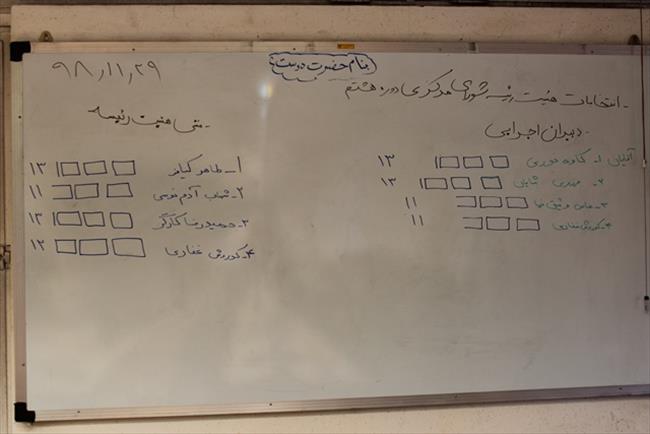 بنام حضرت دوست
۹۸٫۱۱٫۲۹
- انتخابات هیئت رئیسه شورای مرکزی دوره هشتم
- دبیران اجرایی
آقایان ۱- کاوه ۱۳
۲- مهدی ۱۳
۳- عباس وثیق نیا ۱۱
۴- کوروش غفاری ۱۱
- منشی هیئت رئیسه
۱- طاهر ۱۳
۲- شهاب آدم ۱۱
۳- حمیدرضا کارگر ۱۳
۴- کوروش غفاری ۱۲